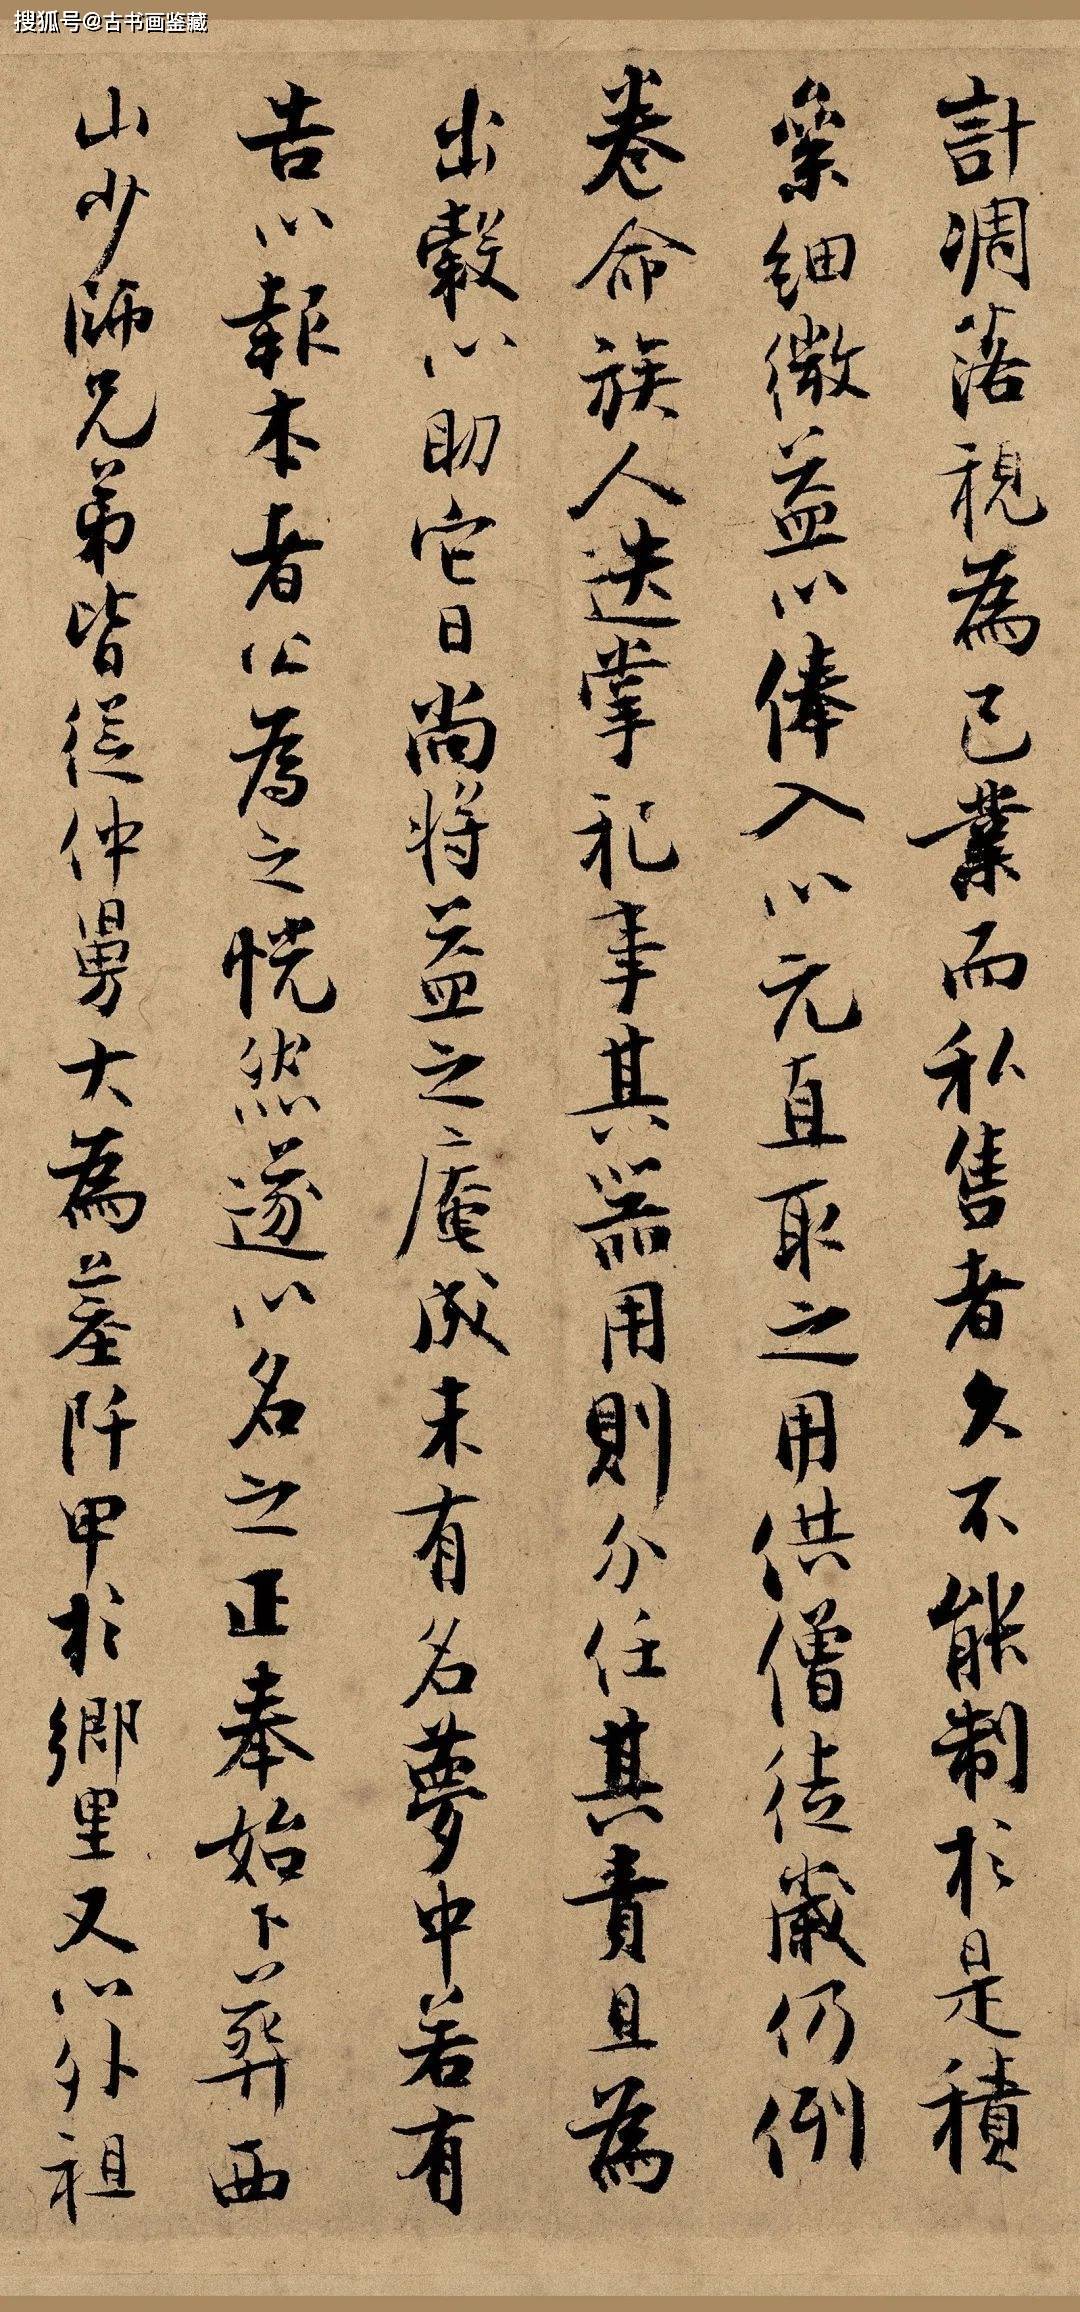 搜狐号@古书画鉴藏
計凋落視為己業而私售者久不能制於是積
絫細微益以俸入以元直取之用供僧徒歲仍例
卷命族人迭掌祀事其器用則分任其責且為
出穀以助它日尚將益之庵成未有名夢中若有
告以報本者公為之恍然遂以名之正奉始卜葬西
山少師兄弟皆從仲舅大為墓阡甲於鄉里又以外祖